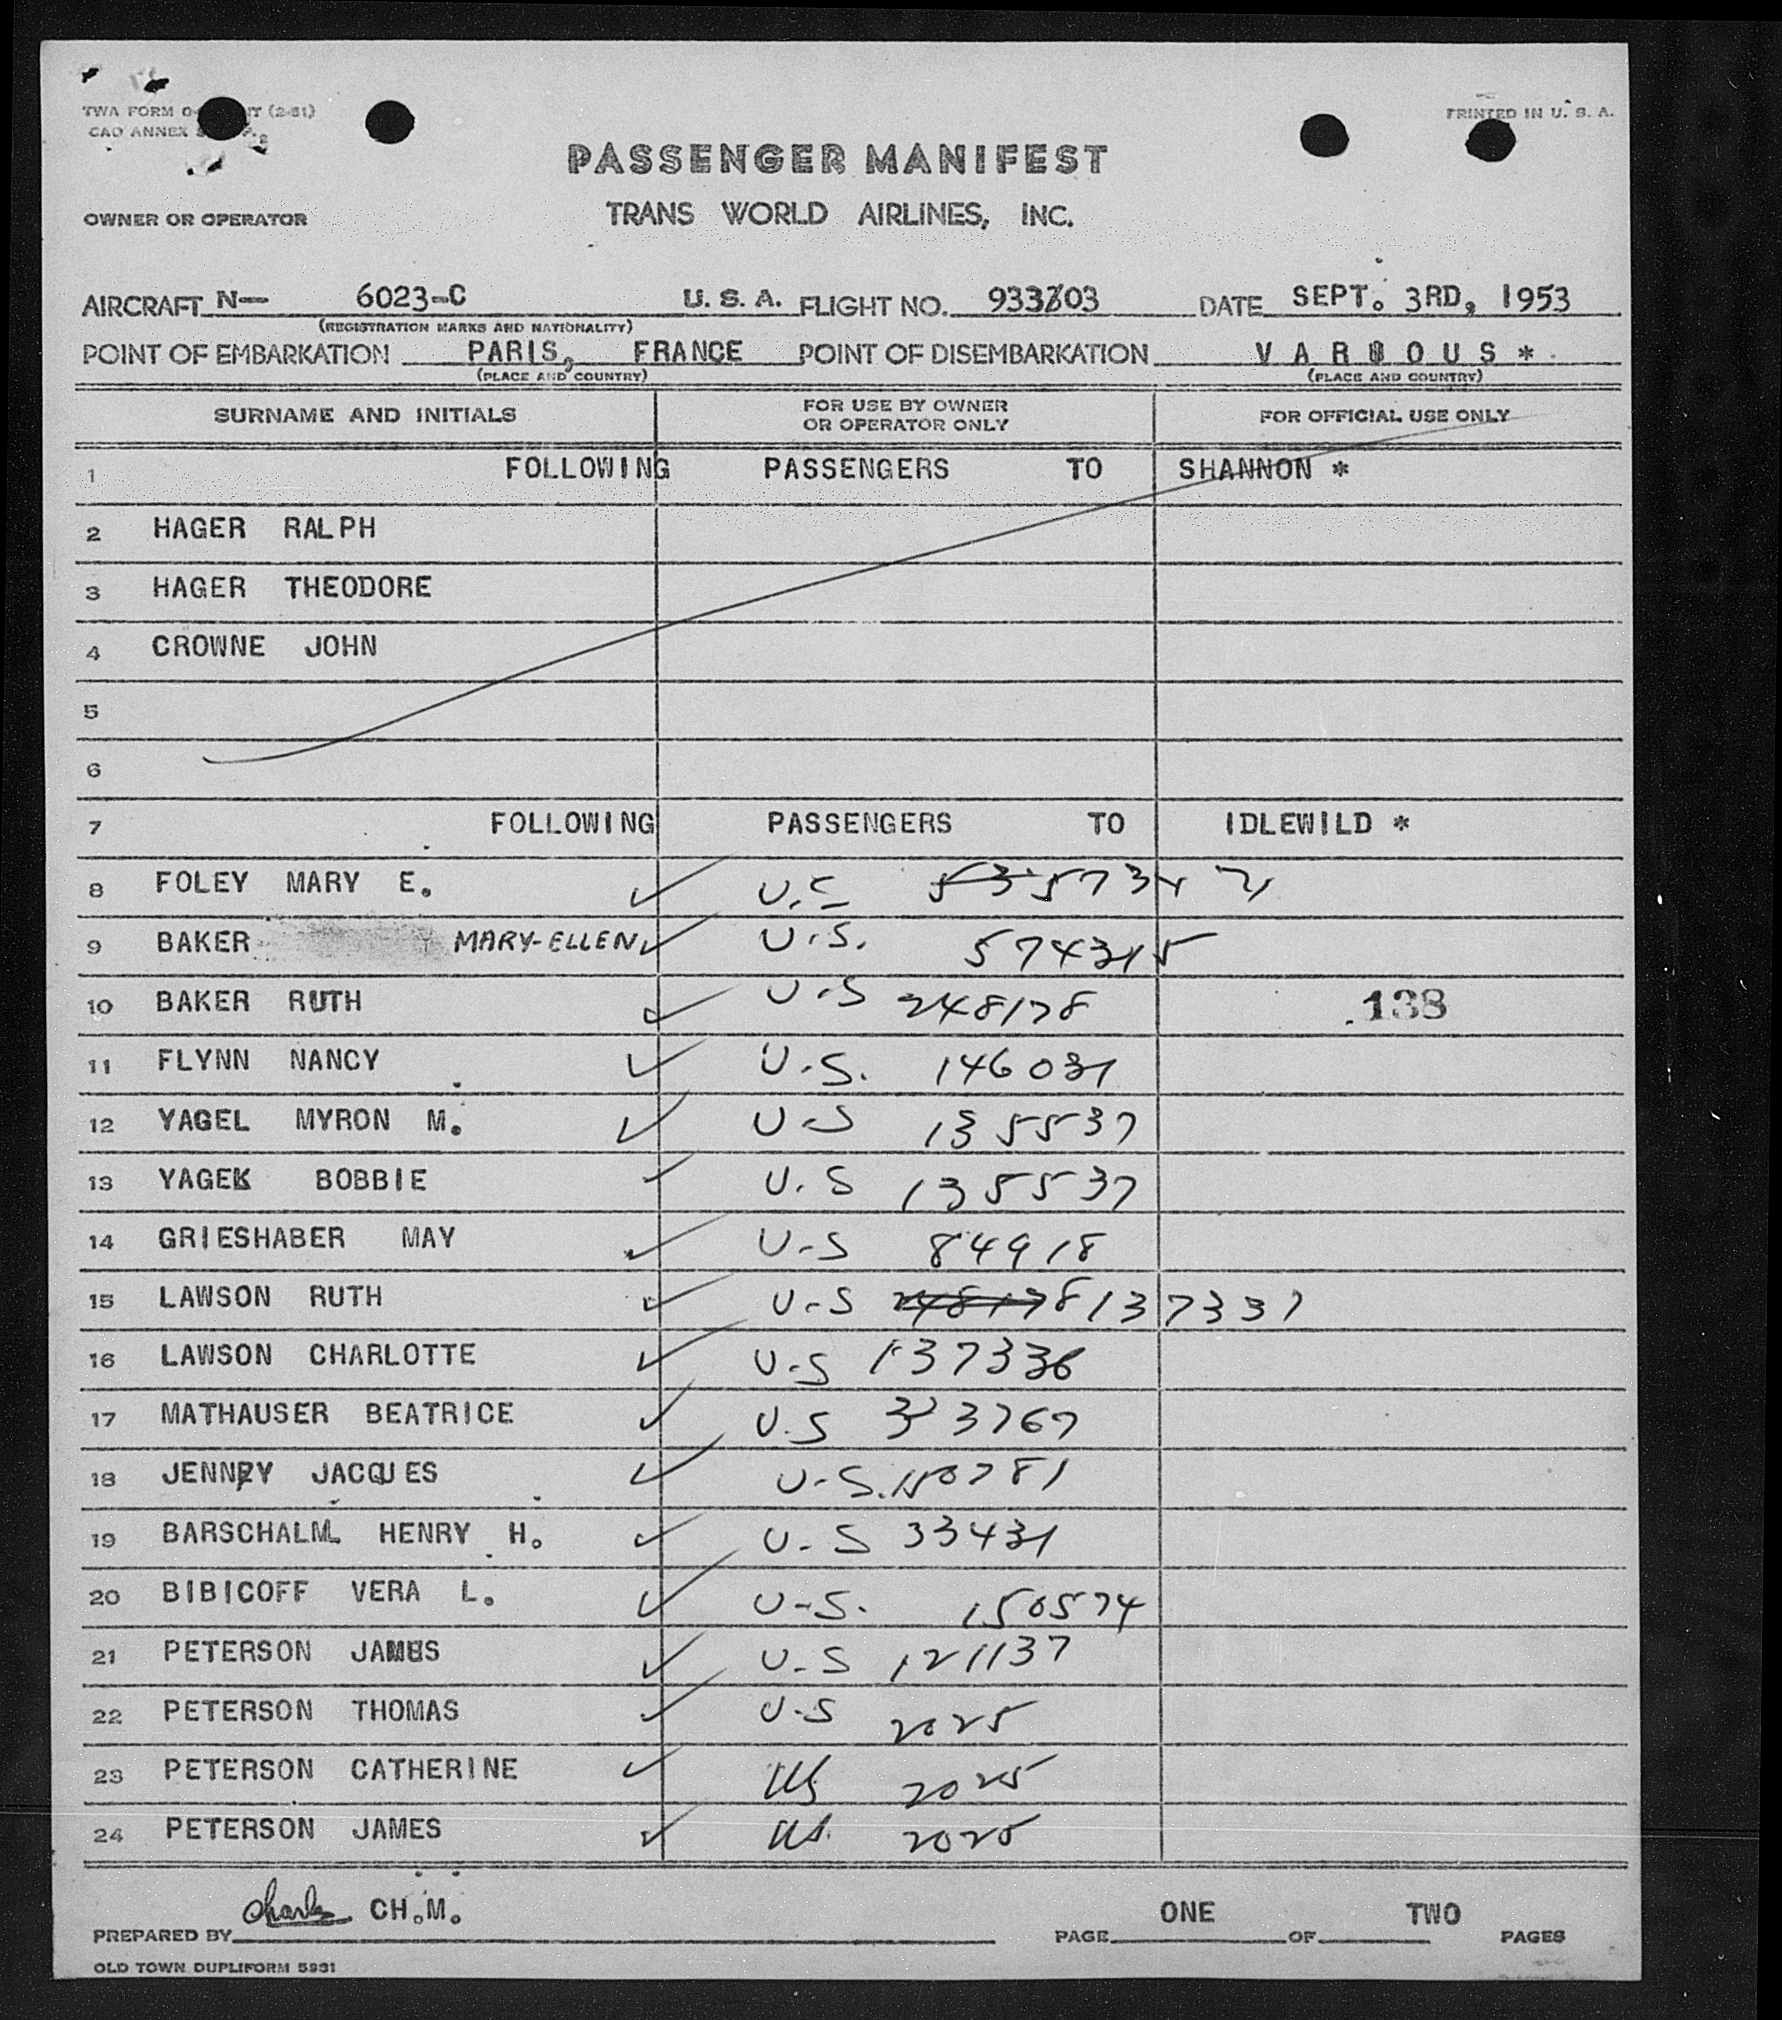 TWA FORM O- NT (2-51)
PRINTED IN U. S. A.
CAO ANNEX
PASSENGER MANIFEST
OWNER OR OPERATOR
TRANS WORLD AIRLINES, INC.
AIRCRAFT N- 6023-C U. S. A. FLIGHT NO. 933/03 DATE SEPT. 3RD, 1953
(REGISTRATION MARKS AND NATIONALITY)
POINT OF EMBARKATION PARIS, FRANCE POINT OF DISEMBARKATION V A R I O U S *
(PLACE AND COUNTRY) (PLACE AND COUNTRY)
SURNAME AND INITIALS FOR USE BY OWNER OR OPERATOR ONLY FOR OFFICIAL USE ONLY
1 FOLLOWING PASSENGERS TO SHANNON *
2 HAGER RALPH
3 HAGER THEODORE
4 CROWNE JOHN
5
6
7 FOLLOWING PASSENGERS TO IDLEWILD *
8 FOLEY MARY E. ✓ U.S
9 BAKER MARY-ELLEN ✓ U.S. 574315
10 BAKER RUTH ✓ U.S 248178 138
11 FLYNN NANCY ✓ U.S. 146031
12 YAGEL MYRON M. ✓ U.S 135537
13 YAGEL BOBBIE ✓ U.S 135537
14 GRIESHABER MAY ✓ U.S 84918
15 LAWSON RUTH ✓ U.S 248178 137337
16 LAWSON CHARLOTTE ✓ U.S 137336
17 MATHAUSER BEATRICE ✓ U.S 33767
18 JENNEY JACQUES ✓ U.S. 110781
19 BARSCHALL HENRY H. ✓ U.S 33431
20 BIBICOFF VERA L. ✓ U.S. 150574
21 PETERSON JAMES ✓ U.S 121137
22 PETERSON THOMAS ✓ U.S 2025
23 PETERSON CATHERINE ✓ US 2025
24 PETERSON JAMES ✓ US. 2025
PREPARED BY Charles CH.M. PAGE ONE OF TWO PAGES
OLD TOWN DUPLIFORM 5931